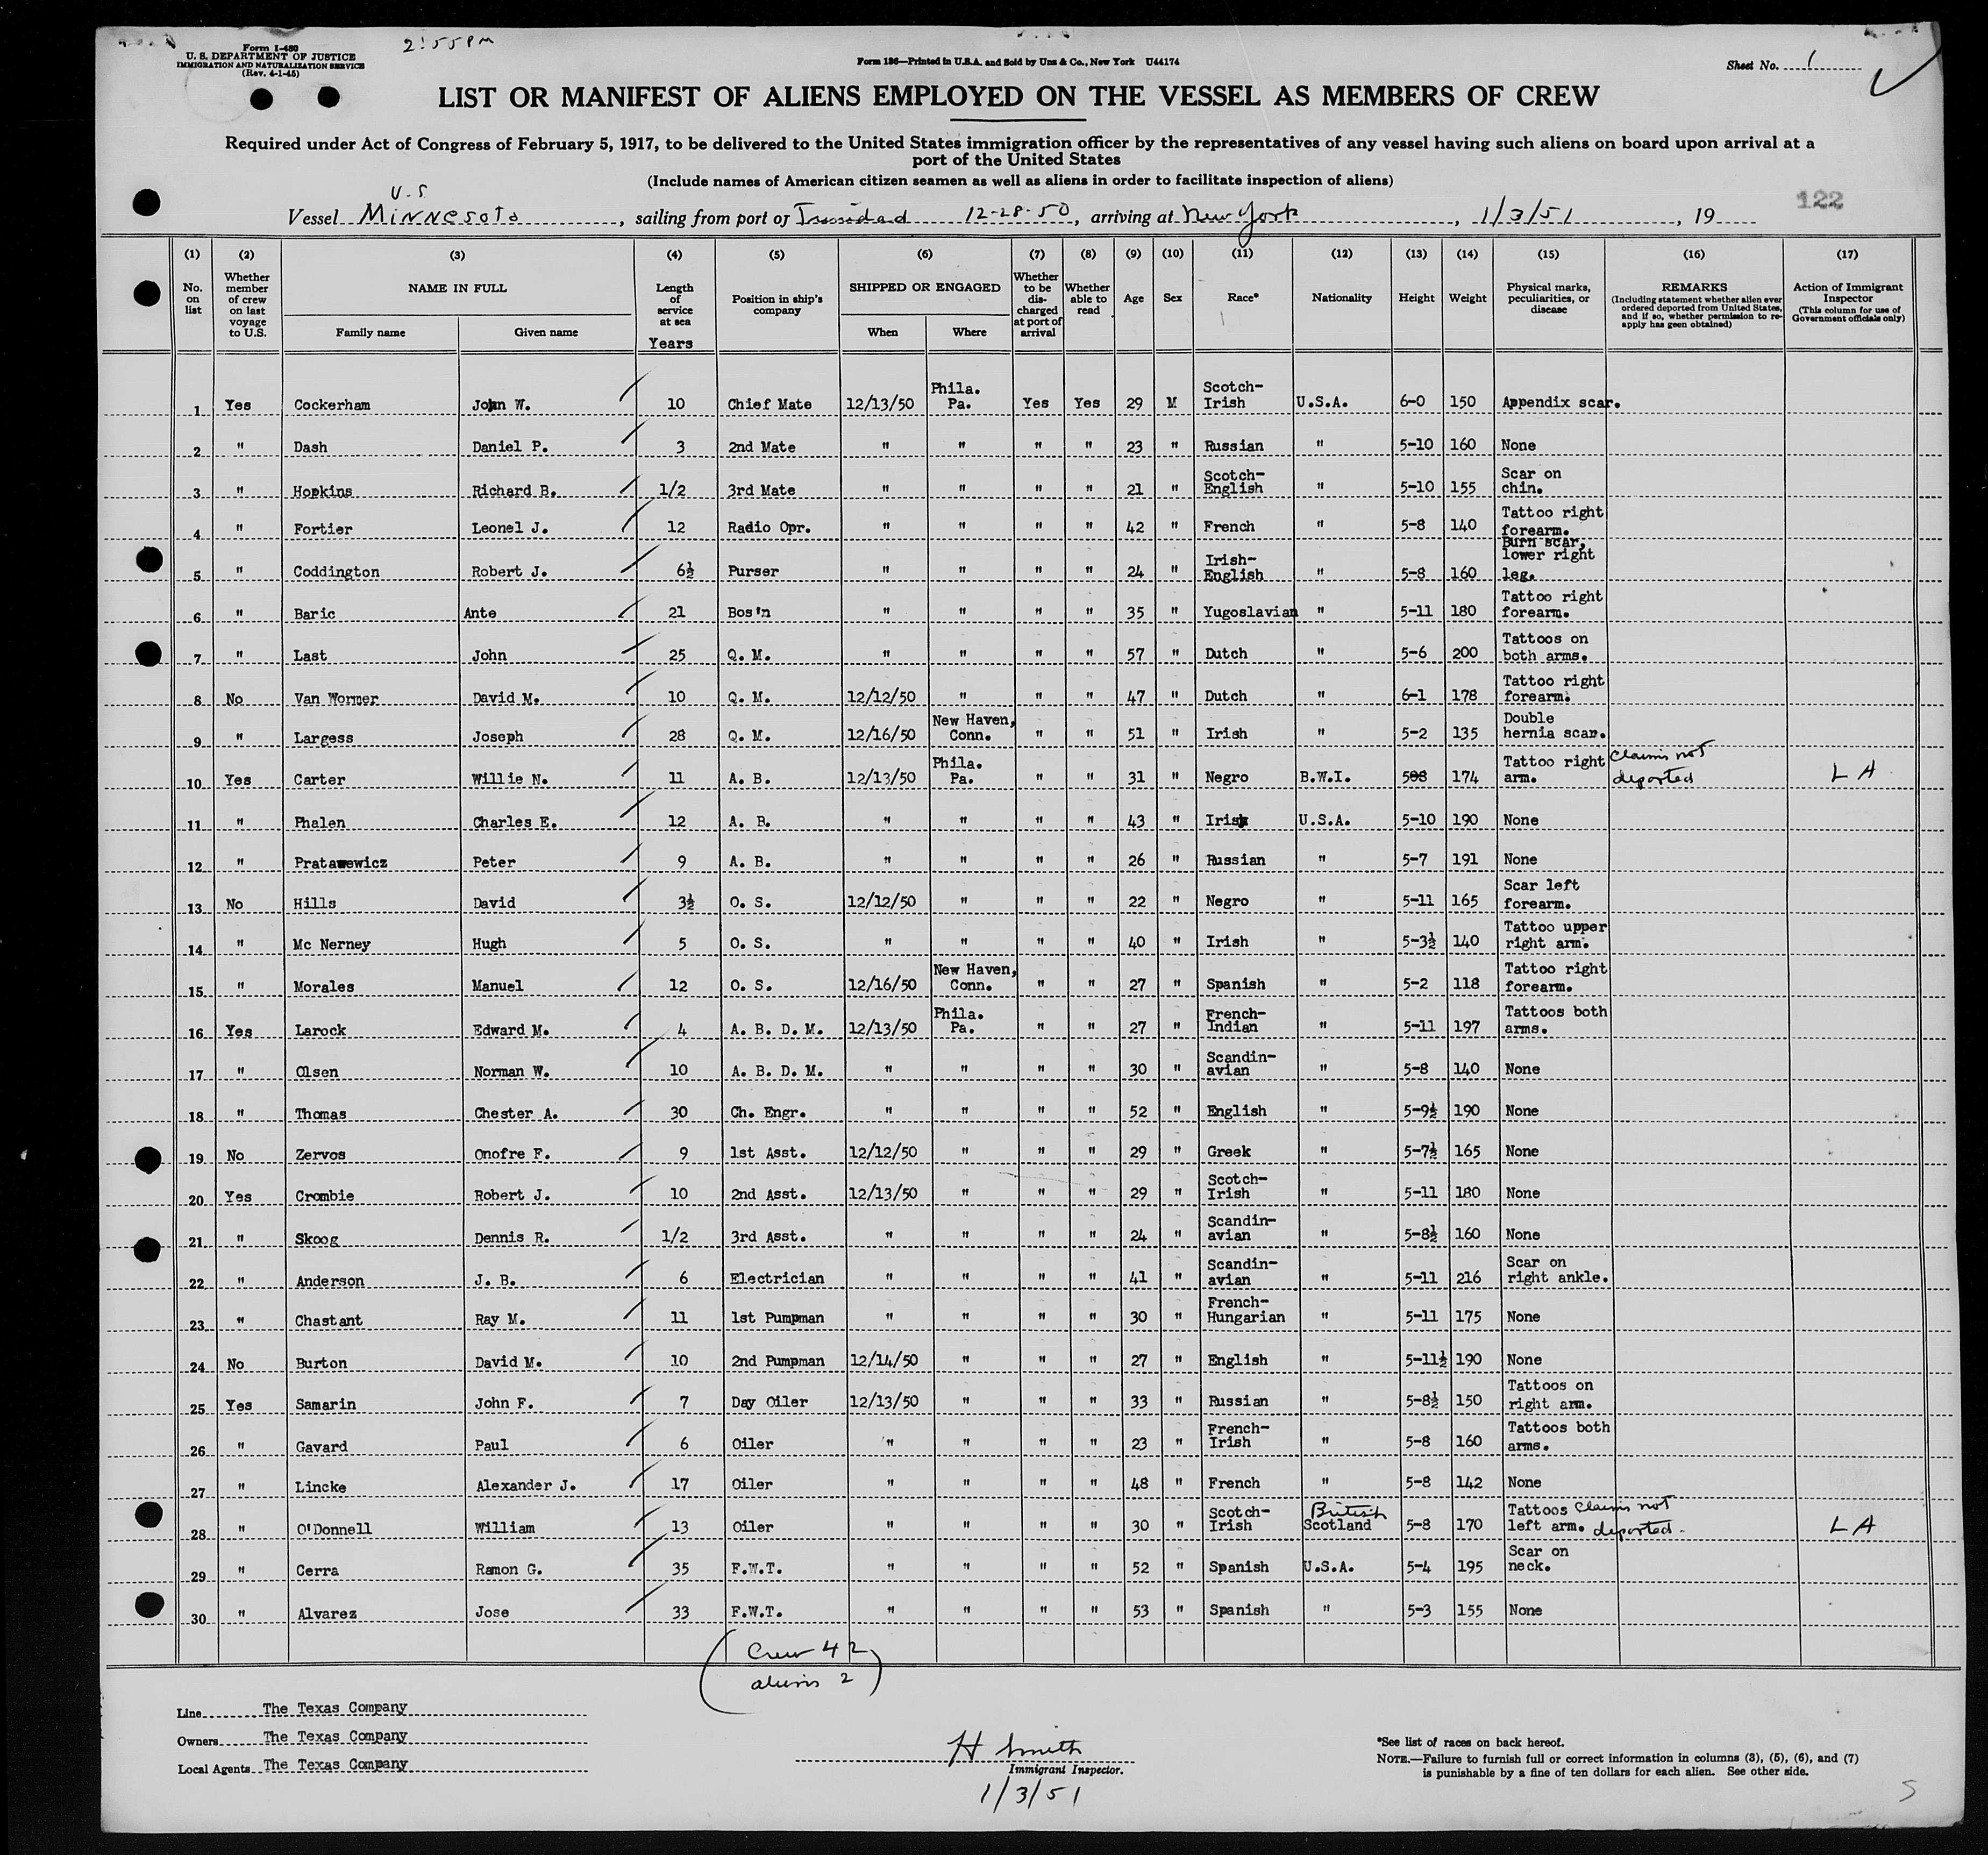 Form I-480
U. S. DEPARTMENT OF JUSTICE
IMMIGRATION AND NATURALIZATION SERVICE
(Rev. 4-1-45)
2:55 PM
Form 186—Printed in U.S.A. and Sold by Unz & Co., New York U44174
Sheet No. 1
LIST OR MANIFEST OF ALIENS EMPLOYED ON THE VESSEL AS MEMBERS OF CREW
Required under Act of Congress of February 5, 1917, to be delivered to the United States immigration officer by the representatives of any vessel having such aliens on board upon arrival at a
port of the United States
(Include names of American citizen seamen as well as aliens in order to facilitate inspection of aliens)
U.S.
Vessel Minnesota, sailing from port of Trinidad 12-28-50, arriving at New York, 1/3/51, 19
122
(1) (2) (3) (4) (5) (6) (7) (8) (9) (10) (11) (12) (13) (14) (15) (16) (17)
No. on list
Whether member of crew on last voyage to U.S.
NAME IN FULL
Family name Given name
Length of service at sea
Years
Position in ship's company
SHIPPED OR ENGAGED
When Where
Whether to be discharged at port of arrival
Whether able to read
Age
Sex
Race*
Nationality
Height
Weight
Physical marks, peculiarities, or disease
REMARKS
(Including statement whether alien ever ordered deported from United States, and if so, whether permission to reapply has geen obtained)
Action of Immigrant Inspector
(This column for use of Government officials only)
1 Yes Cockerham John W. 10 Chief Mate 12/13/50 Phila. Pa. Yes Yes 29 M Scotch-Irish U.S.A. 6-0 150 Appendix scar.
2 " Dash Daniel P. 3 2nd Mate " " " " 23 " Russian " 5-10 160 None
3 " Hopkins Richard B. 1/2 3rd Mate " " " " 21 " Scotch-English " 5-10 155 Scar on chin.
4 " Fortier Leonel J. 12 Radio Opr. " " " " 42 " French " 5-8 140 Tattoo right forearm.
5 " Coddington Robert J. 6½ Purser " " " " 24 " Irish-English " 5-8 160 Burn scar, lower right leg.
6 " Baric Ante 21 Bos'n " " " " 35 " Yugoslavian " 5-11 180 Tattoo right forearm.
7 " Last John 25 Q. M. " " " " 57 " Dutch " 5-6 200 Tattoos on both arms.
8 No Van Wormer David M. 10 Q. M. 12/12/50 " " " 47 " Dutch " 6-1 178 Tattoo right forearm.
9 " Largess Joseph 28 Q. M. 12/16/50 New Haven, Conn. " " 51 " Irish " 5-2 135 Double hernia scar.
10 Yes Carter Willie N. 11 A. B. 12/13/50 Phila. Pa. " " 31 " Negro B.W.I. 508 174 Tattoo right arm. Claims not deported LA
11 " Phalen Charles E. 12 A. B. " " " " 43 " Irish U.S.A. 5-10 190 None
12 " Pratawewicz Peter 9 A. B. " " " " 26 " Russian " 5-7 191 None
13 No Hills David 3½ O. S. 12/12/50 " " " 22 " Negro " 5-11 165 Scar left forearm.
14 " Mc Nerney Hugh 5 O. S. " " " " 40 " Irish " 5-3½ 140 Tattoo upper right arm.
15 " Morales Manuel 12 O. S. 12/16/50 New Haven, Conn. " " 27 " Spanish " 5-2 118 Tattoo right forearm.
16 Yes Larock Edward M. 4 A. B. D. M. 12/13/50 Phila. Pa. " " 27 " French-Indian " 5-11 197 Tattoos both arms.
17 " Olsen Norman W. 10 A. B. D. M. " " " " 30 " Scandin-avian " 5-8 140 None
18 " Thomas Chester A. 30 Ch. Engr. " " " " 52 " English " 5-9½ 190 None
19 No Zervos Onofre F. 9 1st Asst. 12/12/50 " " " 29 " Greek " 5-7½ 165 None
20 Yes Crombie Robert J. 10 2nd Asst. 12/13/50 " " " 29 " Scotch-Irish " 5-11 180 None
21 " Skoog Dennis R. 1/2 3rd Asst. " " " " 24 " Scandin-avian " 5-8½ 160 None
22 " Anderson J. B. 6 Electrician " " " " 41 " Scandin-avian " 5-11 216 Scar on right ankle.
23 " Chastant Ray M. 11 1st Pumpman " " " " 30 " French-Hungarian " 5-11 175 None
24 No Burton David M. 10 2nd Pumpman 12/14/50 " " " 27 " English " 5-11½ 190 None
25 Yes Samarin John F. 7 Day Oiler 12/13/50 " " " 33 " Russian " 5-8½ 150 Tattoos on right arm.
26 " Gavard Paul 6 Oiler " " " " 23 " French-Irish " 5-8 160 Tattoos both arms.
27 " Lincke Alexander J. 17 Oiler " " " " 48 " French " 5-8 142 None
28 " O'Donnell William 13 Oiler " " " " 30 " Scotch-Irish British Scotland 5-8 170 Tattoos left arm. Claims not deported. LA
29 " Cerra Ramon G. 35 F.W.T. " " " " 52 " Spanish U.S.A. 5-4 195 Scar on neck.
30 " Alvarez Jose 33 F.W.T. " " " " 53 " Spanish " 5-3 155 None
(Crew 42
aliens 2)
Line The Texas Company
Owners The Texas Company
Local Agents The Texas Company
H Smith
Immigrant Inspector.
1/3/51
*See list of races on back hereof.
NOTE.—Failure to furnish full or correct information in columns (3), (5), (6), and (7)
is punishable by a fine of ten dollars for each alien. See other side.
5